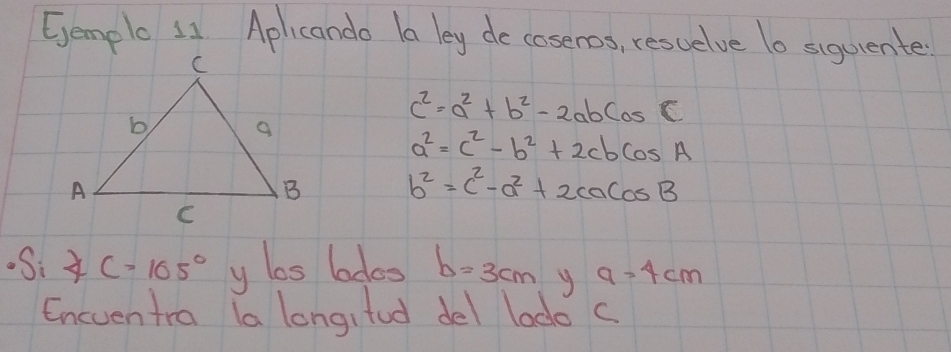 Ejemplo 11 Aplicando la ley de cosenos, resuelve lo siguiente:
C
b
a
A
B
C
c² = a² + b² - 2ab Cos C
a² = c² - b² + 2cb Cos A
b² = c² - a² + 2ca Cos B
• Si ∡ C = 105° y los lados b = 3cm y a = 4cm
Encuentra la longitud del lado c